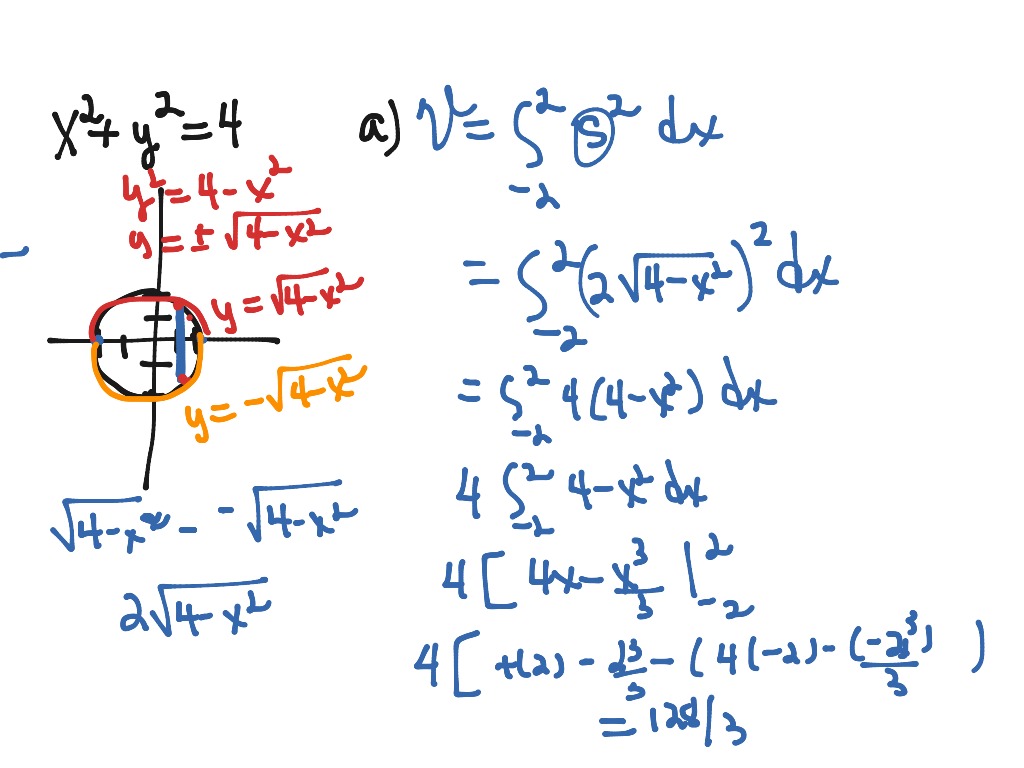 x² + y² = 4
y² = 4 - x²
y = ± √(4-x²)
y = √(4-x²)
y = -√(4-x²)
√(4-x²) - -√(4-x²)
2√(4-x²)
a) V = ∫₋₂² s² dx
= ∫₋₂² (2√(4-x²))² dx
= ∫₋₂² 4(4-x²) dx
4 ∫₋₂² 4-x² dx
4 [ 4x - x³/3 |₋₂²
4 [ 4(2) - 2³/3 - (4(-2) - (-2)³/3 )
= 128/3